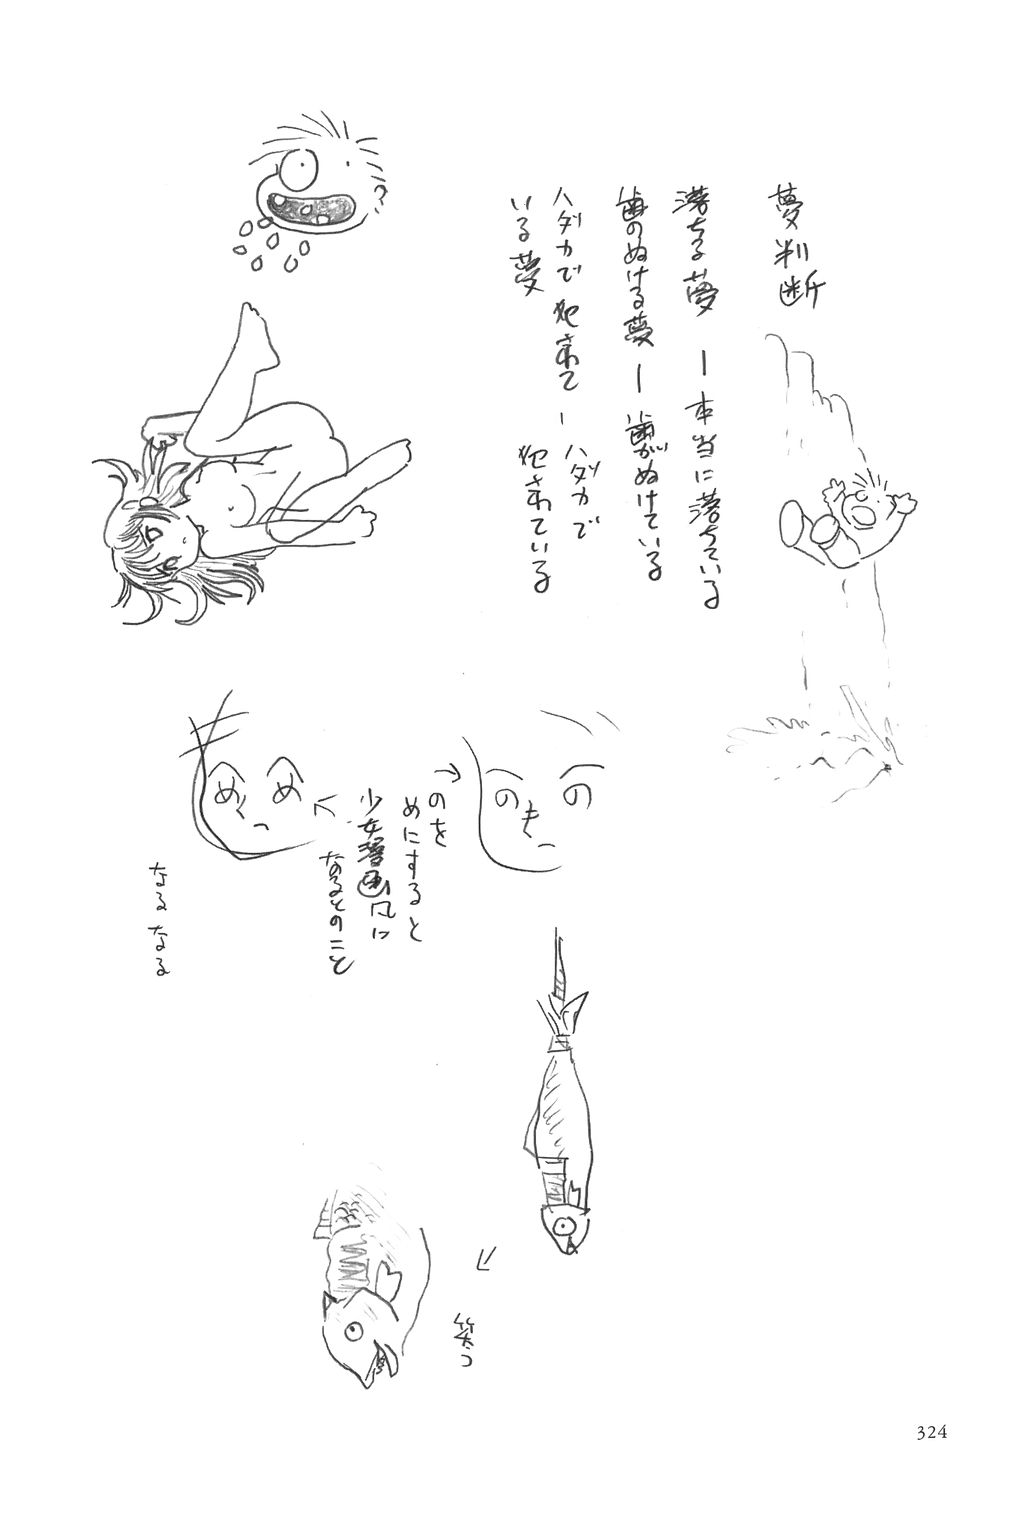 夢判断
落ちる夢 ー 本当に落ちている
歯のぬける夢 ー 歯がぬけている
ハダカで犯されて
いる夢
ー ハダカで
犯されている
の の
も
へ
のを
めにすると
少女漫画風に
なるとのこと
め め
く
へ
なるなる
笑う
324